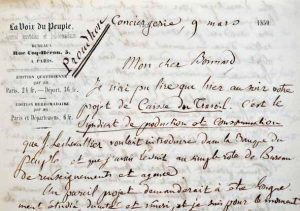 La Voix du Peuple,
BUREAUX
Rue Coq-Héron, 5,
A PARIS.
ÉDITION QUOTIDIENNE
Paris, 24 fr. — Départ.
ÉDITION HEBDOMADAIRE
Paris et Départements, 6 fr.
Proudhon
Conciergerie 9 mars 1850
Mon cher Bonnard
J'ai pu lire que hier au soir votre
projet de Caisse du C'est le
Syndicat de production et Consommation
que Lechevallier voulait introduire dans la Banque du
Peuple et que j'avais réduit au simple rôle de Bureau
de renseignements et agence
Un pareil projet demanderait à être
étudié, et je suis pour le moment